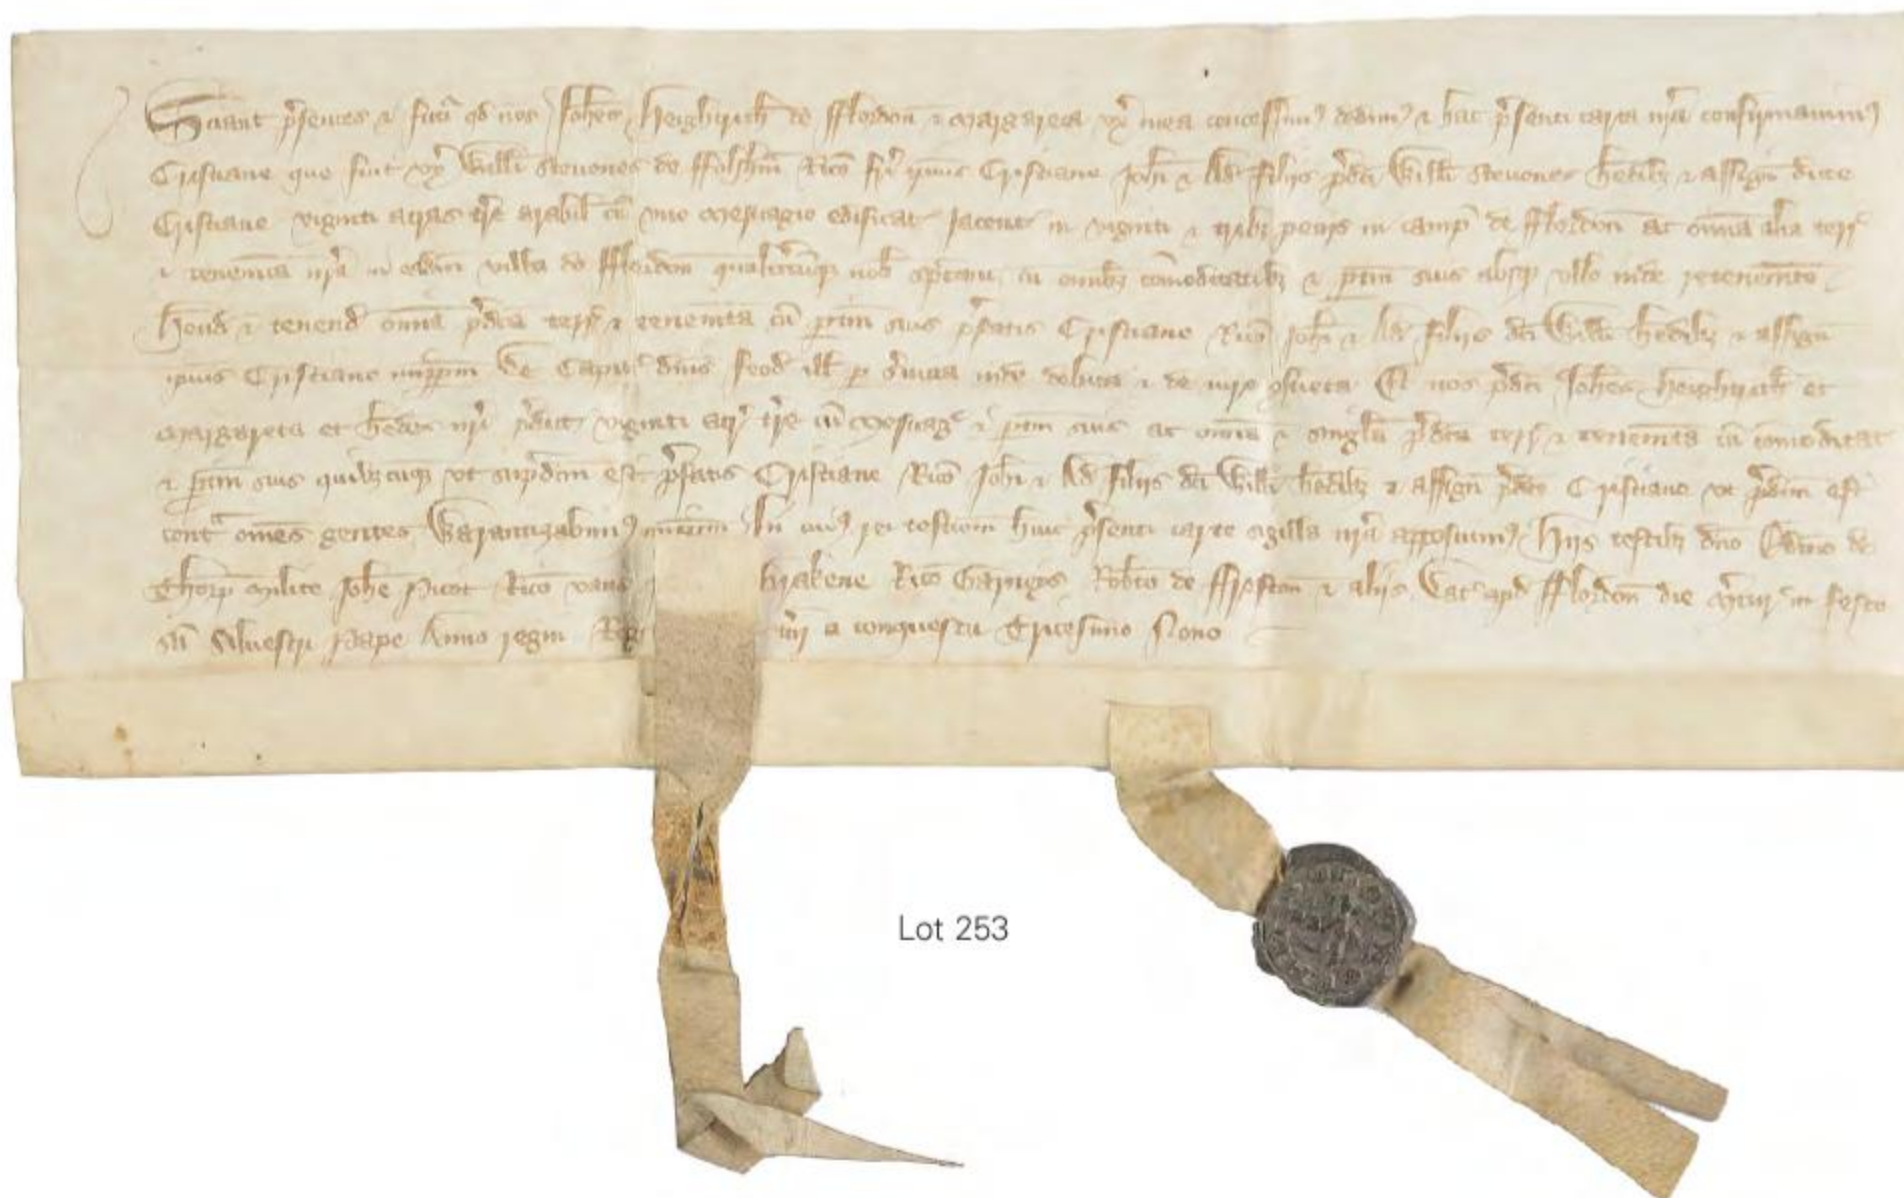 Sciant p'sentes & futi' qd nos Johes Heighrich de Fflordon & Margareta ux' mea concessim' dedim' & hac p'senti carta nra confirmavim'
Cristiane que fuit ux' Willi Stevenes de Rico fri ipius Cristiane Johi & Ad filijs p'dci Willi Stevenes hedibz & assign dicte
Cristiane viginti acras tre arabil cu uno mesuagio edificat jacent in viginti & tribz pecijs in camp de Fflordon ac omia alia terr'
& tenemta nra in eadm villa de Fflordon nob cu omibz comoditatibz & ptin suis absqz ullo retenemto
Hend & tenend omia p'dca terr & tenemta cu ptin suis p'fatis Cristiane Rico Johi & Ad filijs dci Willi hedibz & assign
ipius Cristiane imppm De Capit' dnis feod ill p s'vicia inde debita & de iure consueta Et nos p'dci Johes Heighrich et
Margareta et hedes nri p'dict viginti acr' tre cu mesuag' & ptin suis ac omia & singla p'dca terr & tenemta cu comoditat
& ptin suis quibzcuqz ut sup'dcm est p'fatis Cristiane Rico Johi & Ad filijs dci Willi hedibz & assign p'dce Cristiane ut p'dcm est
cont' omes gentes Warantizabim' In cui' rei testiom huic p'senti carte sigilla nra apposuim' Hijs testibz dno Edmo de
Thorp milite Johe Picot Rico brakene Rico Robto de & alijs Dat apd Fflordon die in festo
Sci Silvestri Pape Anno regni t'cij a conquestu Tricesimo Nono
Lot 253